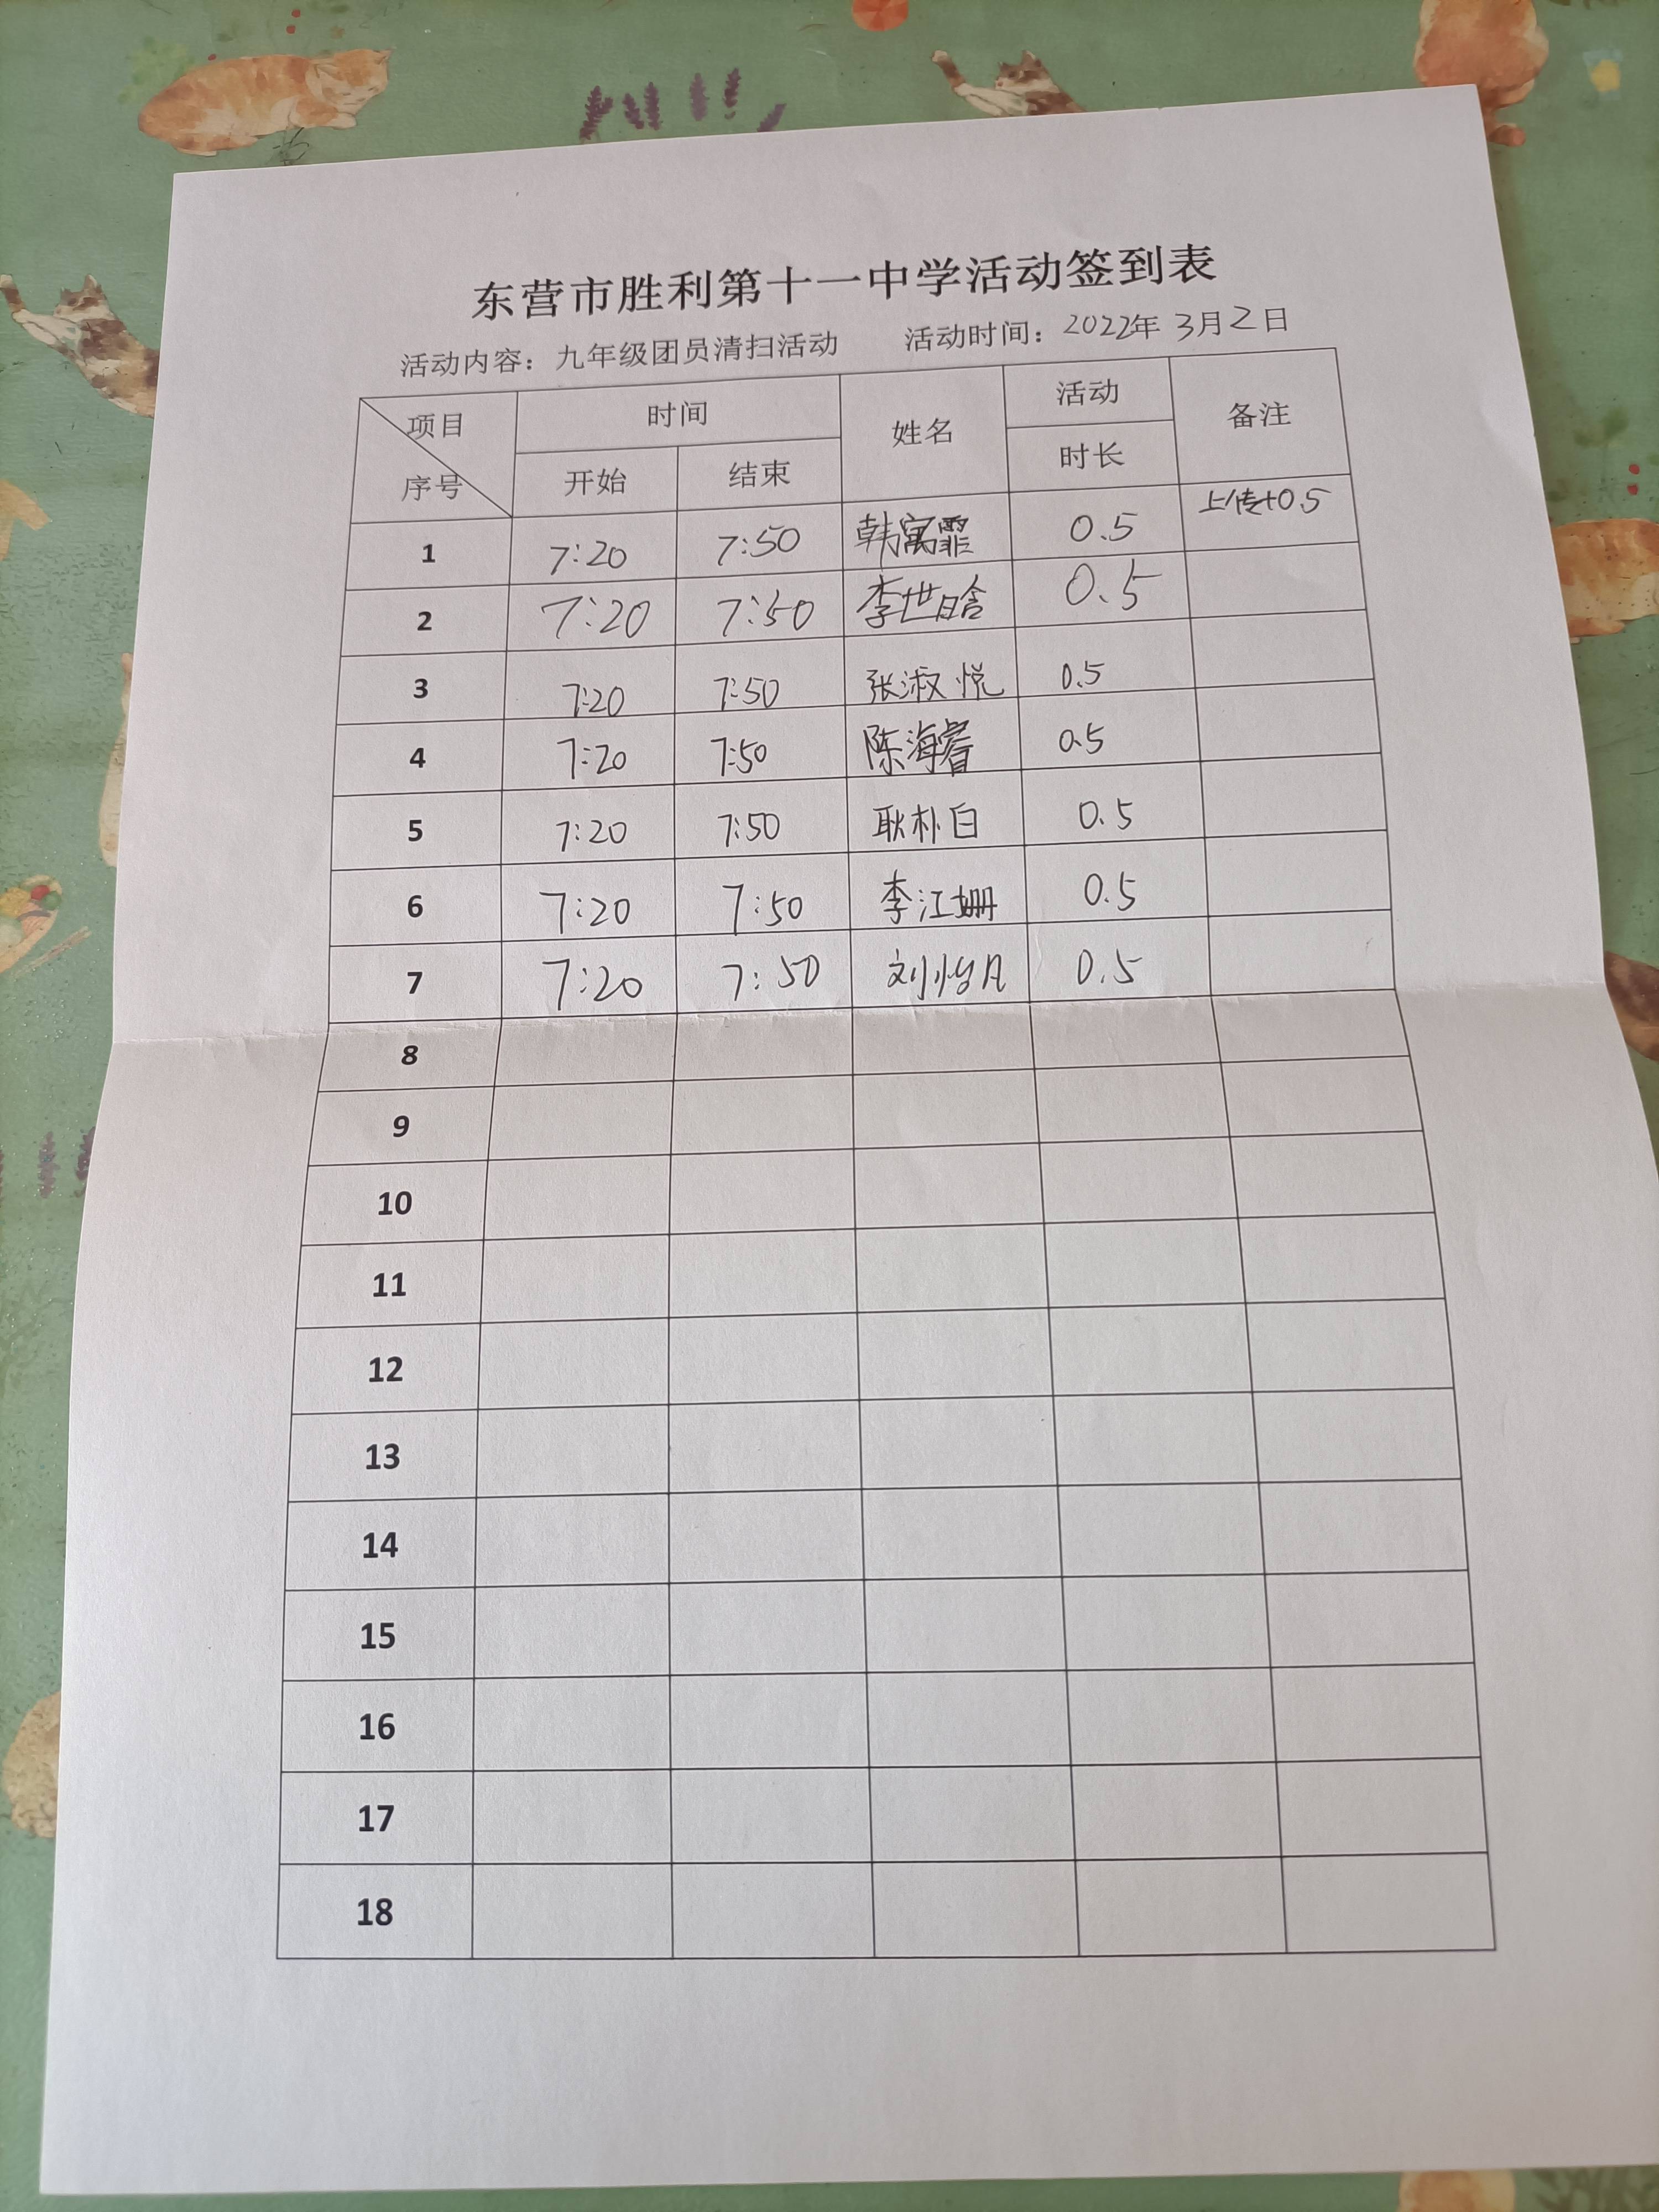 东营市胜利第十一中学活动签到表
活动内容：九年级团员清扫活动 活动时间：2022年 3月2日
项目 时间 姓名 活动 备注
序号 开始 结束 时长
1 7:20 7:50 韩寓霏 0.5 上传+0.5
2 7:20 7:50 李世晗 0.5
3 7:20 7:50 张淑悦 0.5
4 7:20 7:50 陈海睿 0.5
5 7:20 7:50 耿朴白 0.5
6 7:20 7:50 李江姗 0.5
7 7:20 7:50 刘怡凡 0.5
8
9
10
11
12
13
14
15
16
17
18